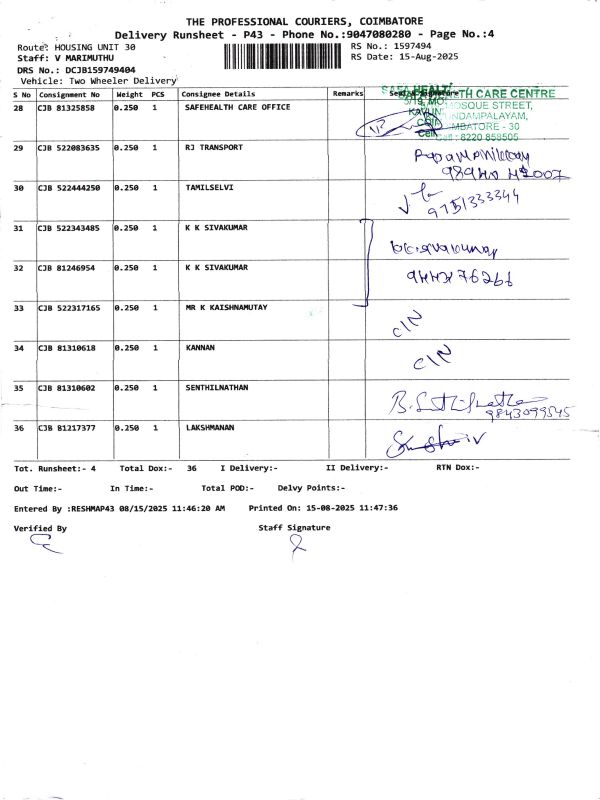 THE PROFESSIONAL COURIERS, COIMBATORE
Delivery Runsheet - P43 - Phone No.:9047080280 - Page No.:4
Route: HOUSING UNIT 30
RS No.: 1597494
Staff: V MARIMUTHU
RS Date: 15-Aug-2025
DRS No.: DCJB159749404
Vehicle: Two Wheeler Delivery
S No Consignment No Weight PCS Consignee Details Remarks
28 CJB 81325858 0.250 1 SAFEHEALTH CARE OFFICE
HEALTH CARE CENTRE
5/19, MOSQUE STREET,
COIMBATORE - 30
Cell : 8220 858505
29 CJB 522083635 0.250 1 RJ TRANSPORT
30 CJB 522444250 0.250 1 TAMILSELVI
9751333344
31 CJB 522343485 0.250 1 K K SIVAKUMAR
32 CJB 81246954 0.250 1 K K SIVAKUMAR
33 CJB 522317165 0.250 1 MR K KAISHNAMUTAY
C/N
34 CJB 81310618 0.250 1 KANNAN
C/N
35 CJB 81310602 0.250 1 SENTHILNATHAN
9843099545
36 CJB B1217377 0.250 1 LAKSHMANAN
Tot. Runsheet:- 4 Total Dox:- 36 I Delivery:- II Delivery:- RTN Dox:-
Out Time:- In Time:- Total POD:- Delvy Points:-
Entered By :RESHMAP43 08/15/2025 11:46:20 AM Printed On: 15-08-2025 11:47:36
Verified By Staff Signature